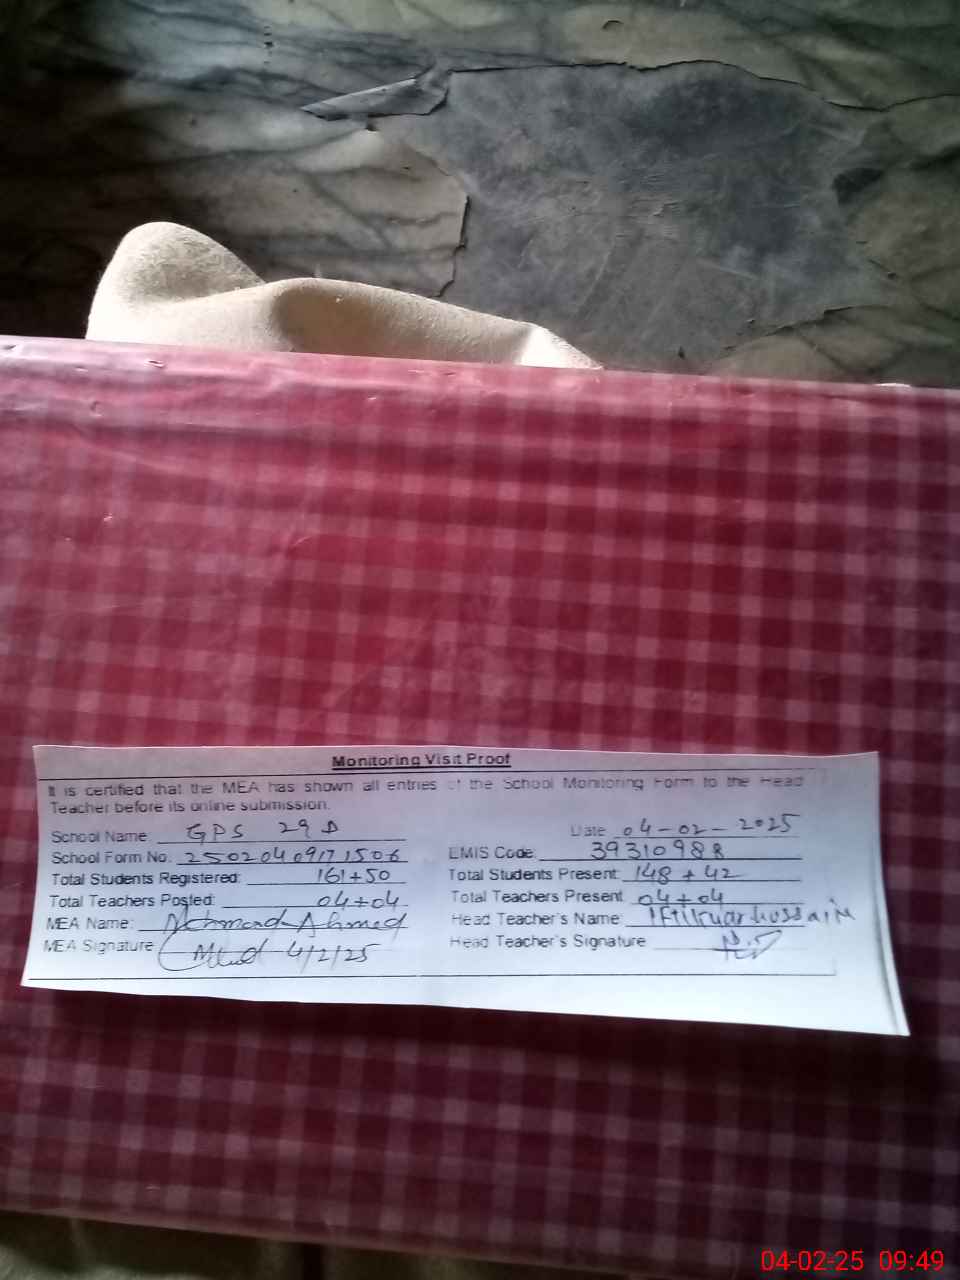 Monitoring Visit Proof
It is certified that the MEA has shown all entries of the School Monitoring Form to the Head
Teacher before its online submission.
School Name GPS 29 D
Date 04-02-2025
School Form No. 25020409171506
EMIS Code: 39310988
Total Students Registered: 161+50
Total Students Present: 148+42
Total Teachers Posted: 04+04
Total Teachers Present 04+04
MEA Name: Ahmed
Head Teacher's Name: hussain
MEA Signature 4/2/25
Head Teacher's Signature
04-02-25 09:49